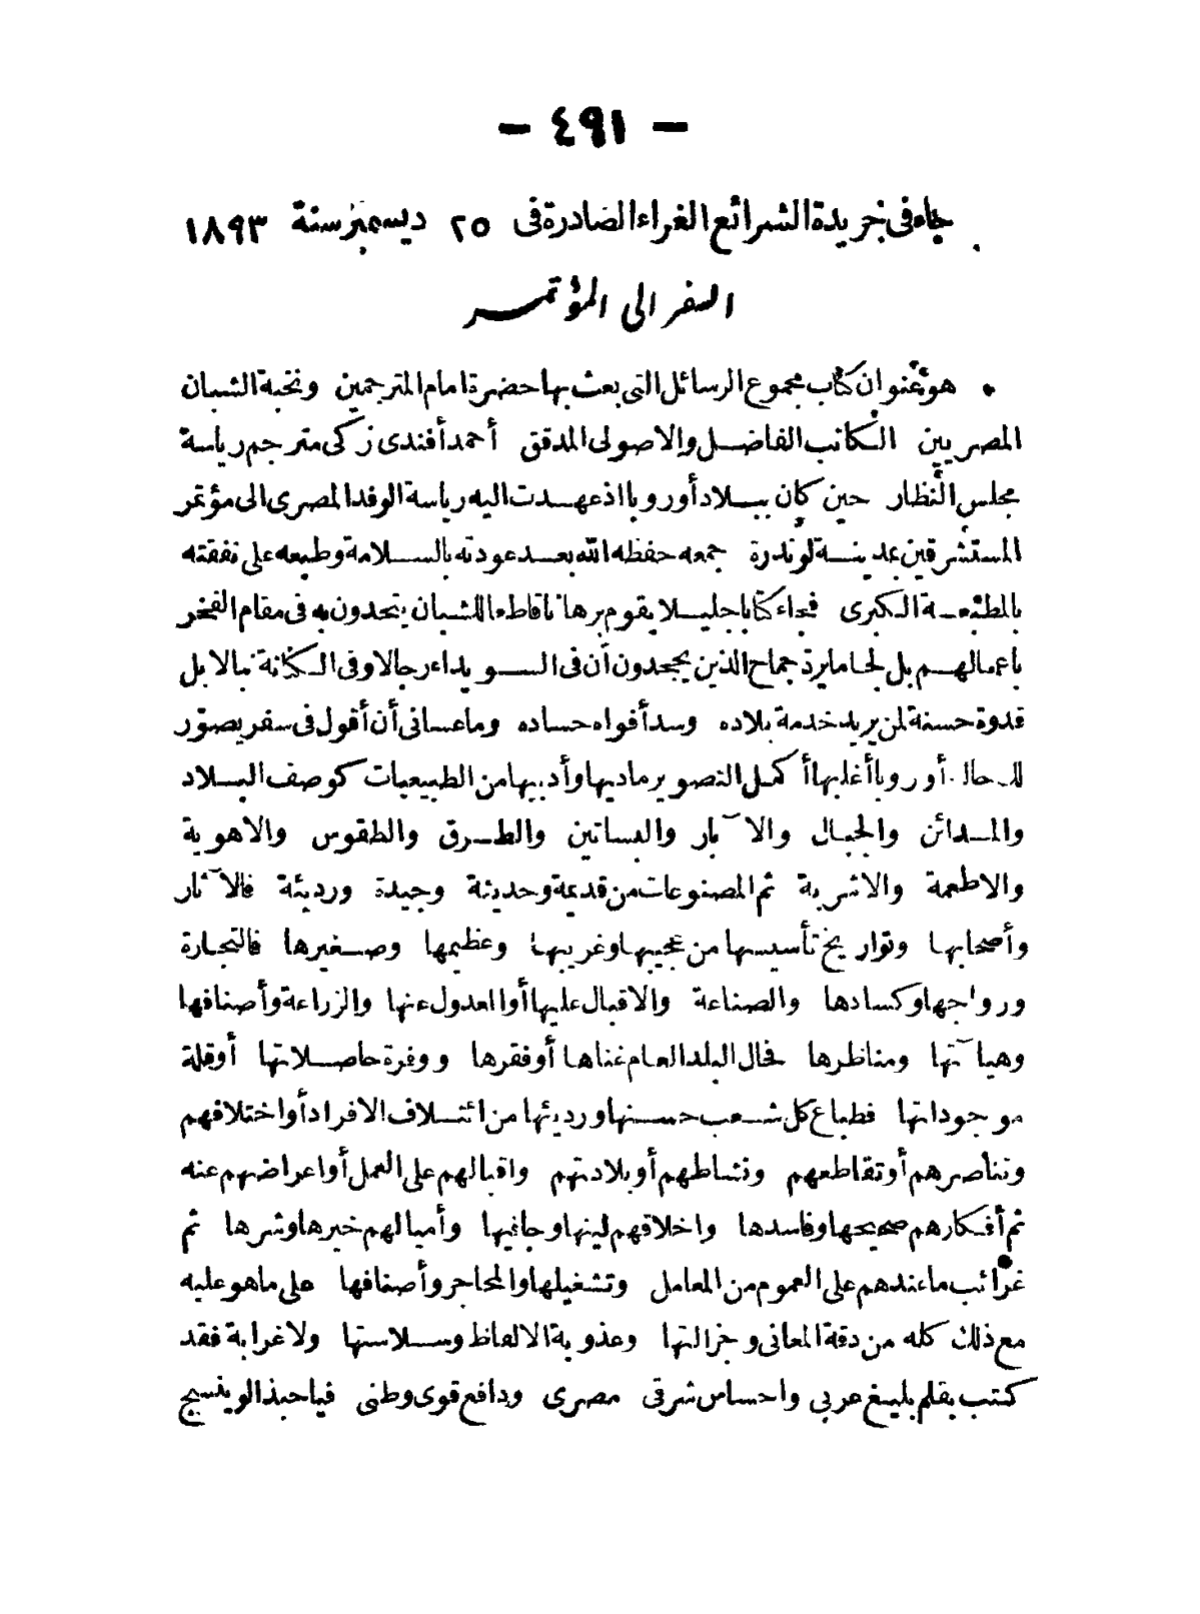 — ٤٩١ —
جاء فى جريدة الشرائع الغراء الصادرة فى ٢٥ ديسمبر سنة ١٨٩٣
السفر الى المؤتمـــر
هو عنوان كتاب مجموع الرسائل التى بعث بها حضرة امام المترجمين ونخبة الشبان
المصريين الكاتب الفاضل والاصولى المدقق أحمد أفندى زكى مترجم رياسة
مجلس النظار حين كان ببلاد أوروبا اذ عهدت اليه رياسة الوفد المصرى الى مؤتمر
المستشرقين بمدينة لوندرة جمعه حفظه الله بعد عودته بالسلامة وطبعه على نفقته
بالمطبعة الكبرى فجاء كتابا جليلا يقوم برهانا قاطعا للشبان يتحدون به فى مقام الفخر
باعمالهم بل لجاما يرد جماح الذين يجحدون أن فى السويداء رجالا وفى الكنانة نبالا بل
قدوة حسنة لمن يريد خدمة بلاده وسد أفواه حساده وما عسانى أن أقول فى سفر يصوّر
أوروبا أغلبها أكمل التصوير ماديها وأدبيها من الطبيعيات كوصف البلاد
والمدائن والجبال والآبار والبساتين والطرق والطقوس والاهوية
والاطعمة والاشربة ثم المصنوعات من قديمة وحديثة وجيدة ورديئة فالآثار
وأصحابها وتواريخ تأسيسها من عجيبها وغريبها وعظيمها وصغيرها فالتجارة
ورواجها وكسادها والصناعة والاقبال عليها أوالعدول عنها والزراعة وأصنافها
وهيآتها ومناظرها فحال البلد العام غناها أوفقرها ووفرة حاصلاتها أوقلة
موجوداتها فطباع كل شعب حسنها ورديئها من ائتلاف الافراد أواختلافهم
وتناصرهم أوتقاطعهم ونشاطهم أوبلادتهم واقبالهم على العمل أواعراضهم عنه
ثم أفكارهم صحيحها وفاسدها واخلاقهم لينها وجافيها وأميالهم خيرها وشرها ثم
غرائب ماعندهم على العموم من المعامل وتشغيلها والمحاجر وأصنافها على ماهو عليه
مع ذلك كله من دقة المعانى وجزالتها وعذوبة الالفاظ وسلاستها ولاغرابة فقد
كتب بقلم بليغ عربى واحساس شرقى مصرى ودافع قوى وطنى فياحبذا لو ينسج